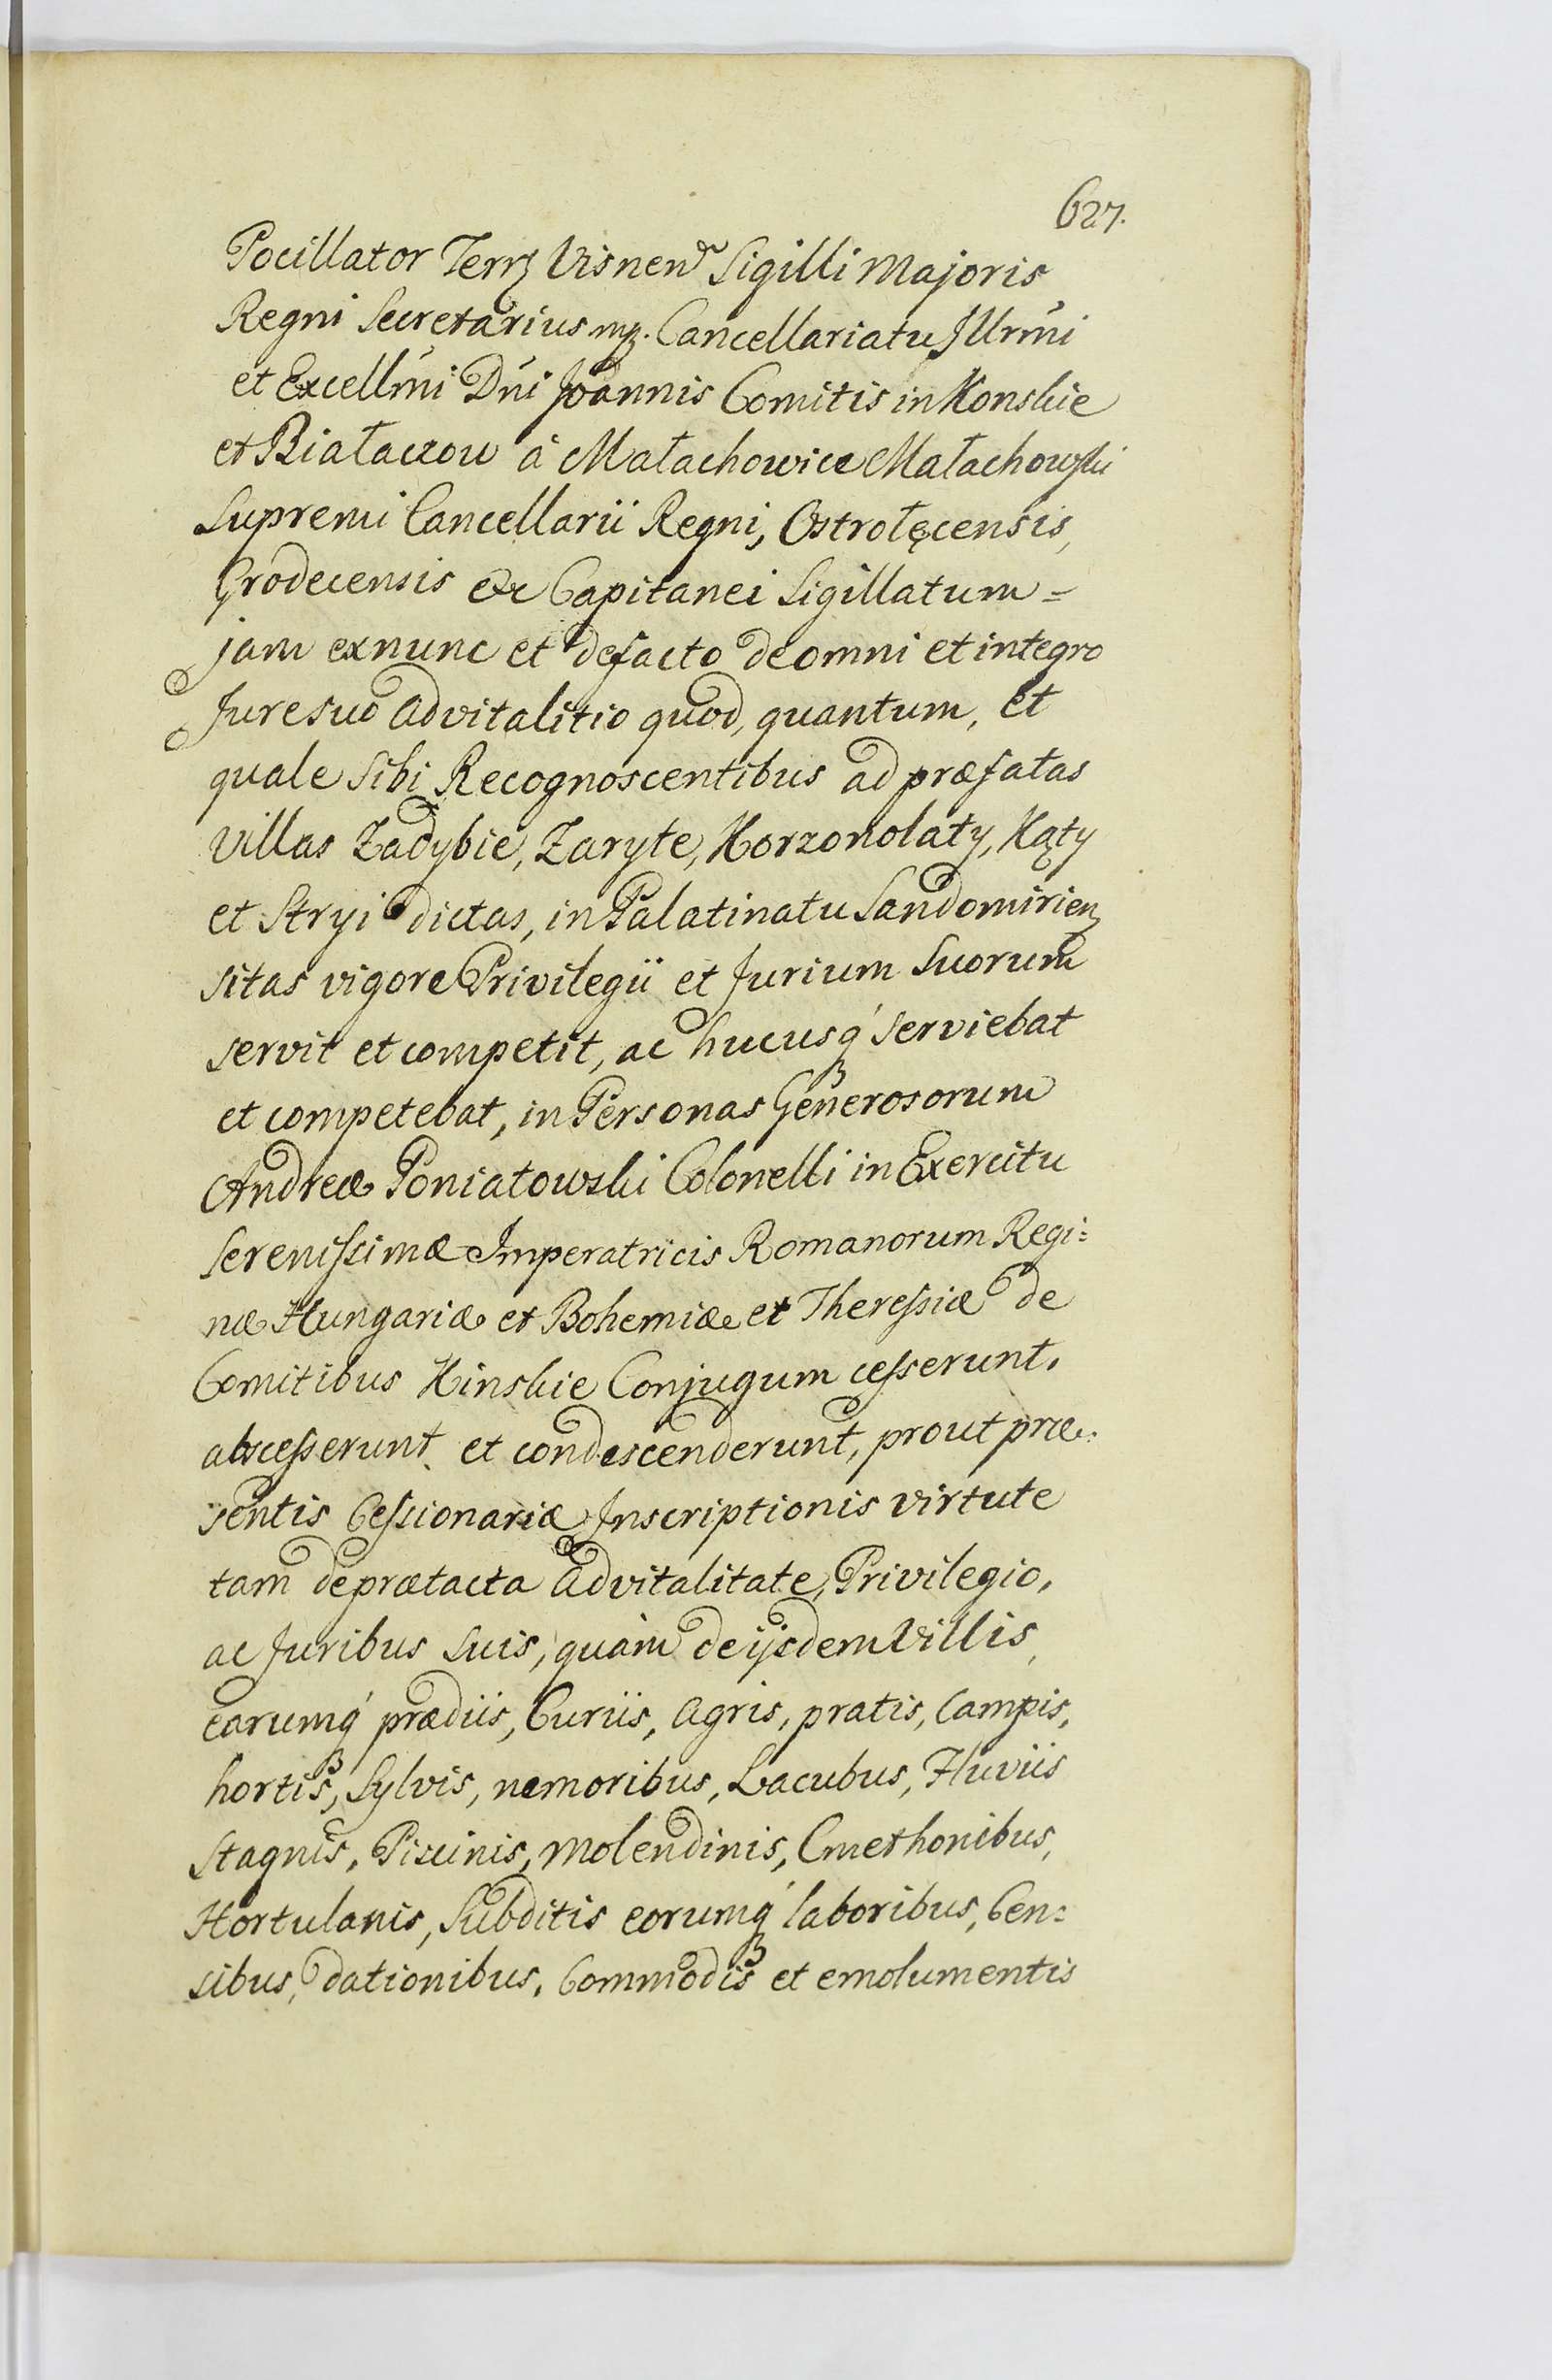 627.
Pocillator Terrӕ Visnen̄ Sigilli Majoris
Regni Secretarius mp. Cancellariatu Illrmi
et Excellmi Dni Joannis Comitis in Konskie
et Białaczow à Małachowice Małachowski
Supremi Cancellarii Regni, Ostrołęcensis,
Grodecensis &c Capitanei Sigillatum=
jam exnunc et defacto de omni et integro
Jure suo Advitalitio quod, quantum, et
quale sibi Recognoscentibus ad præfatas
Villas Zadybie, Zaryte, Korzonolaty, Kąty
et Stryi dictas, in Palatinatu Sandomirien
sitas vigore Privilegii et Jurium Suorum
servit et competit, ac hucusq́ serviebat
et competebat, in Personas Generosorum
Andreæ Poniatowski Colonelli in Exercitu
Serenissimæ Imperatricis Romanorum Regi:
næ Hungariæ et Bohemiæ et Theressiæ de
Comitibus Kinskie Conjugum cesserunt,
abscesserunt et condescenderunt, prout præ:
sentis Cessionariæ Inscriptionis virtute
tam de prætacta Advitalitate, Privilegio,
ac Juribus suis, quàm de ijsdem Villis,
earumq́ prædiis, Curiis, Agris, pratis, Campis,
hortis, Sylvis, nemoribus, Lacubus, Fluviis
Stagnis, Piscinis, Molendinis, Cmethonibus,
Hortulanis, Subditis eorumq́ laboribus, Cen:
sibus, dationibus, Commodis et emolumentis